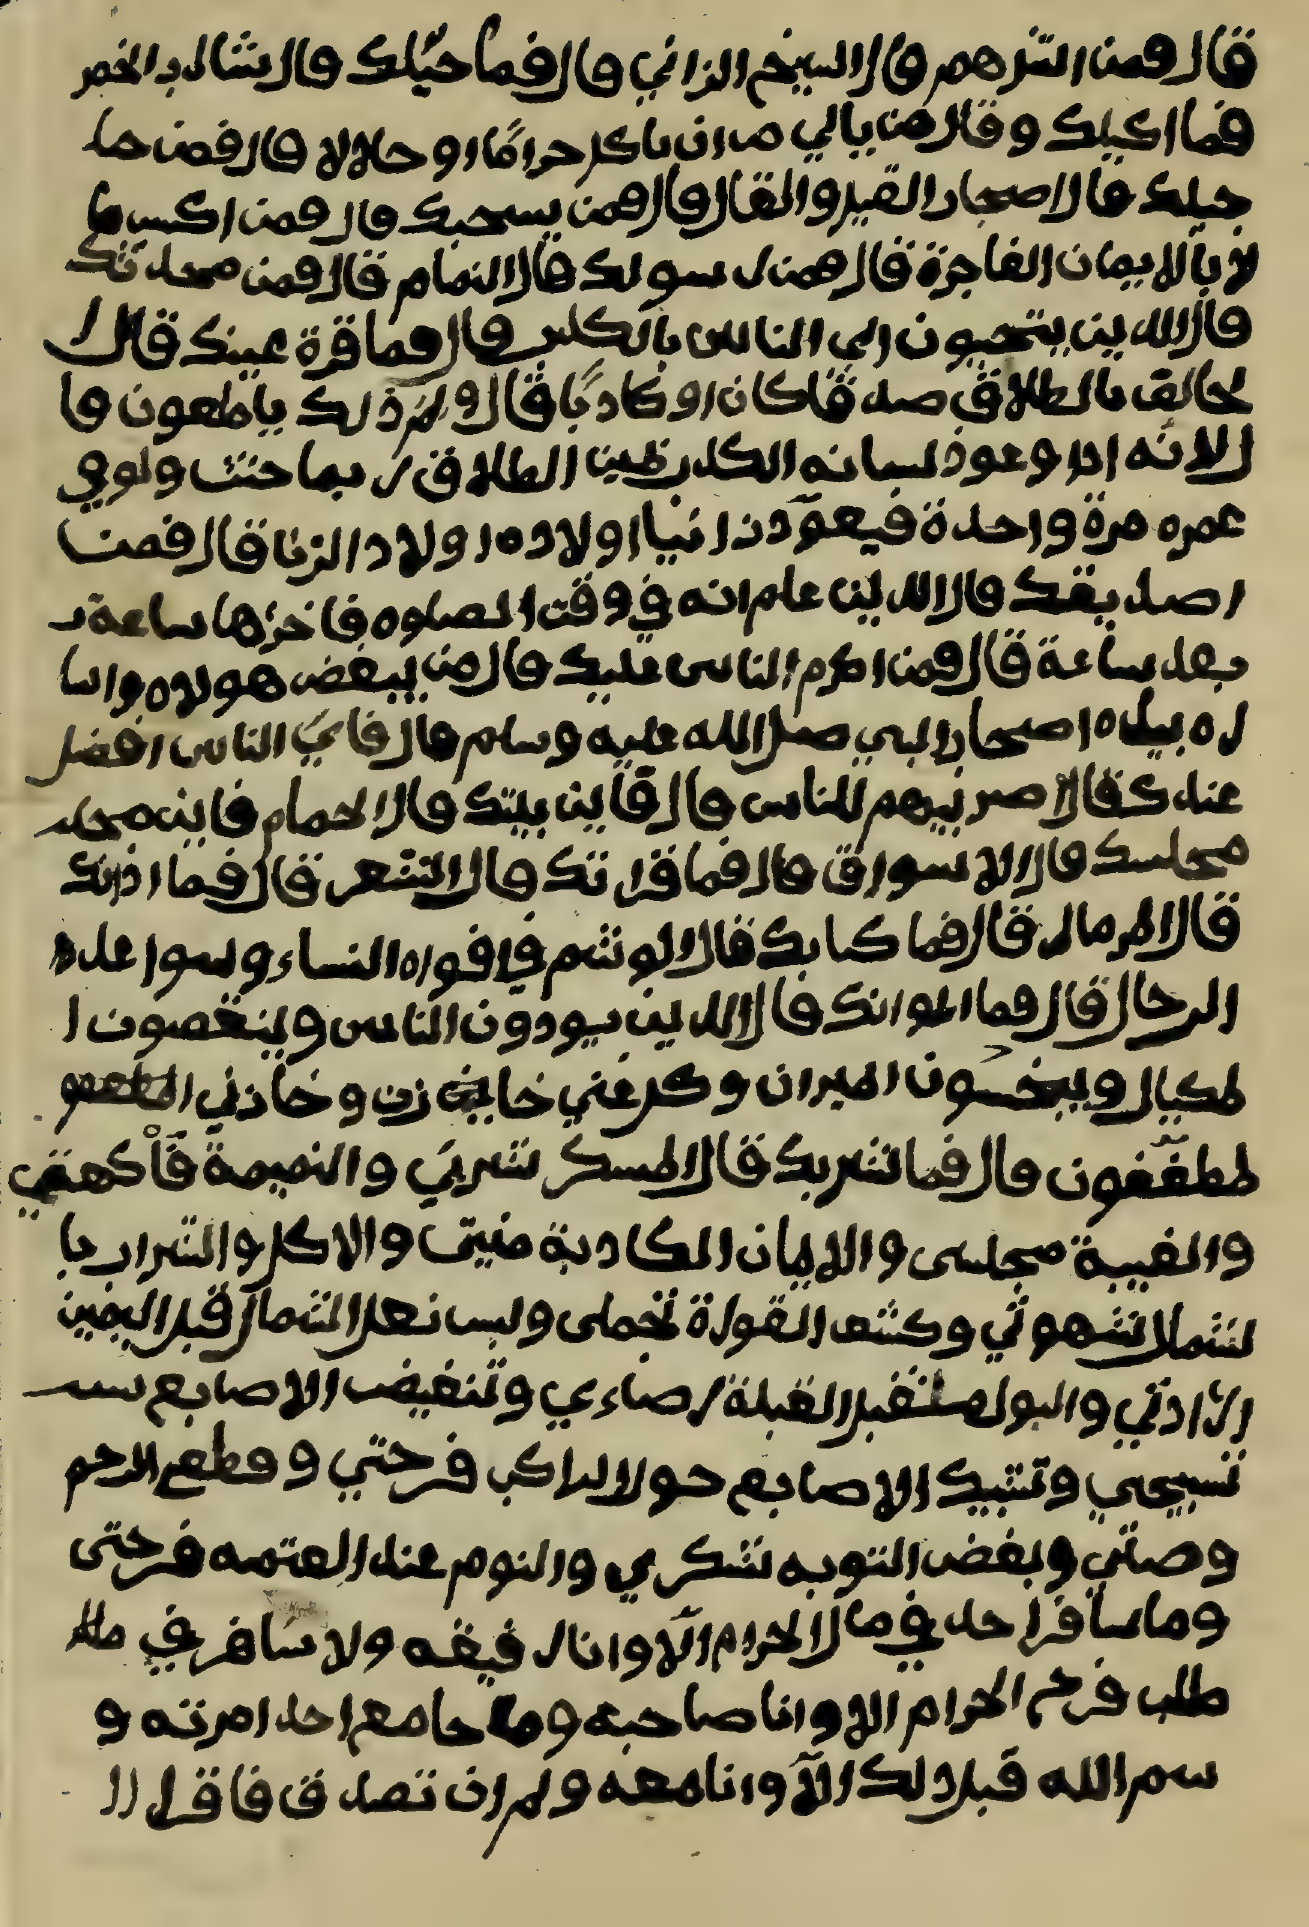 قال فمن اشرهم قال الشيخ الزاني قال فما خيلك قال شارب الخمر
فما اكيلك وقال من يبالي من ان ياكل حراما او حلالا قال فمن
خيلك قال اصحاب القيل والقال قال فمن يسحبك قال فمن اكسب ما
لا بالايمان الفاجرة قال فمن رسولك قال النمام قال فمن محدتك
قال الدين يتحببون الي الناس بالكدب قال فما قرة عينك قال ا
لحالف بالطلاق صدقا كان او كادبا قال ولم ذلك يا ملعون قا
ل لانه ادا وعود لسانه الكدب يمين الطلاق ربما حنث ولو في
عمره مرة واحدة فيعود زانيا اولاده اولاد الزنا قال فمن
اصديقك قال الدين علم انه في وقت الصلوه فاخرها ساعة
بعد ساعة قال فمن اكرم الناس عليك قال من يبغض هولاه واشا
ره بيده اصحاب النبي صلي الله عليه وسلم قال فاي الناس افضل
عندك قال اضربهم للناس قال فاين بيتك قال الحمام فاين
مجلسك قال الاسواق قال فما قراتك قال الشعر قال فما اذانك
قال المزمار قال فما كتابك قال الوشم في افواه النساء وسواعده
الرجال قال فما اخوانك قال الدين يودون الناس وينغصون ا
لمكيال ويبخسون الميزان وكل غني خاين
لمطففون قال فما شربك قال المسكر شربي والنميمة فاكهتي
والغيبة مجلسى والايمان الكادبة منيتى والاكل والشراب با
لشمال شهوتي وكشف العورة تجملى ولبس نعل الشمال قبل اليمين
ارادتي والبول مستقبل القبلة رضاءي وتنغيض الاصابع
تسبيحي وتشبيك الاصابع حول الراكب فرحتي وقطع الرحم
وصلتي وبغض التوبه شكري والنوم عند العتمه فرحتى
وما سافر احد في مال الحرام الا وانا رفيقه ولا سافر في
طلب فرج الحرام الا وانا صاحبه وما جامع احد امرته و
سم الله قبل ذلك الا وانا معه ولم ان تصدق فاقرا ال